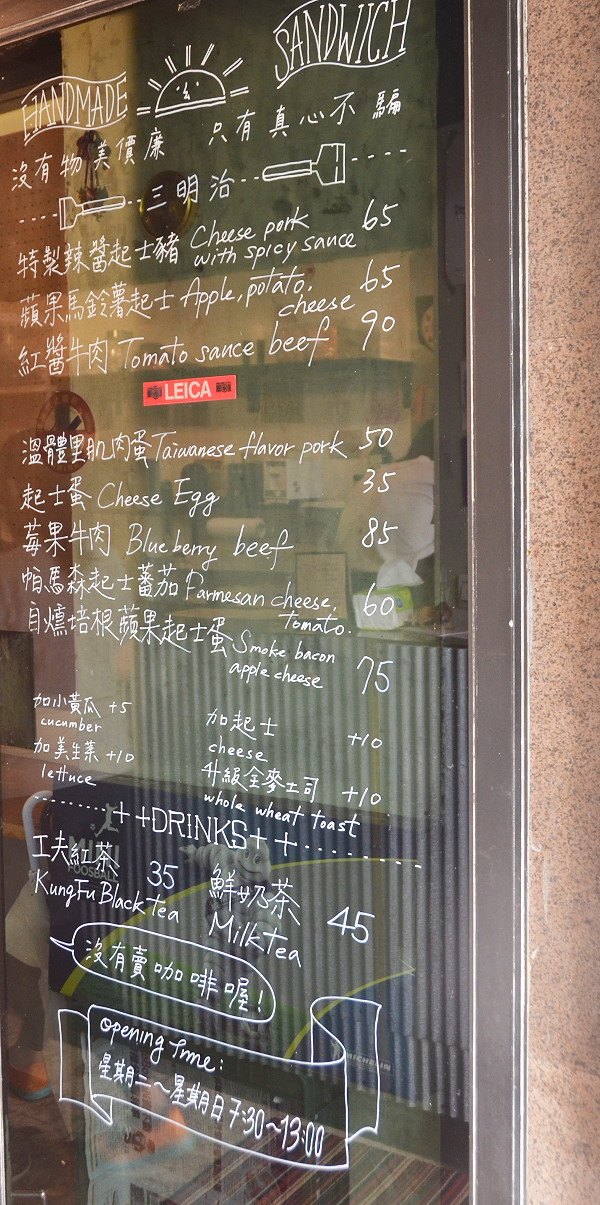 HANDMADE
SANDWICH
沒有物美價廉 只有真心不騙
三明治
特製辣醬起士豬 Cheese pork 65
with spicy sauce
蘋果馬鈴薯起士 Apple, potato, 65
cheese
紅醬牛肉 Tomato sauce beef 90
LEICA
溫體里肌肉蛋 Taiwanese flavor pork 50
起士蛋 Cheese Egg 35
莓果牛肉 Blueberry beef 85
帕馬森起士蕃茄 Parmesan cheese, 60
tomato.
自燻培根蘋果起士蛋 Smoke bacon 75
apple cheese
加小黃瓜 +5
cucumber
加起士 +10
cheese
加美生菜 +10
lettuce
升級全麥土司 +10
whole wheat toast
++DRINKS++
工夫紅茶 35
KungFu Black tea
鮮奶茶 45
Milk tea
沒有賣咖啡喔!
opening time:
星期二～星期日 7:30～13:00
FOOSBALL
MICHELIN